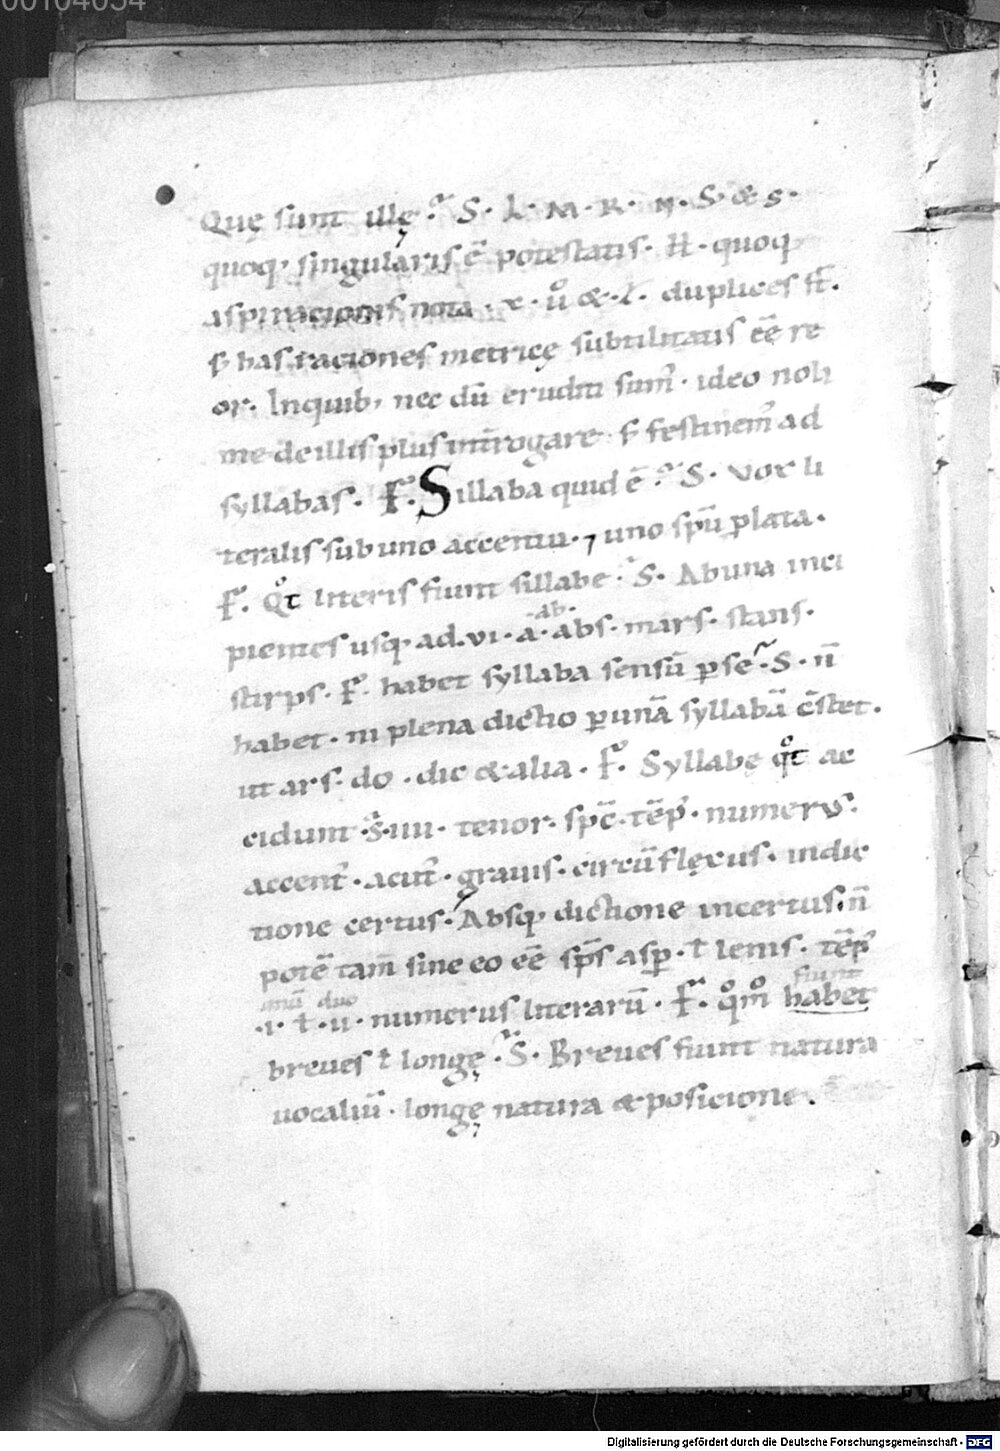 00104034
Quę sunt illę · S · L · M · R · N · S · & s ·
quoq; singularis ē potestatis · H · quoq;
aspiracionis nota · x · ů & · z · duplices st̄ ·
s; has raciones metricę subtilitatis eē re
or · In quib; nec dū eruditi sum̄ · ideo noli
me de illis plus int̄rogare · s; festinem̄ ad
syllabas · F̄ · Sillaba quid ē · S · Vox li
teralis sub uno accentu · ⁊ uno sp̄u p̱lata ·
F̄ · Qͦt literis fiunt sillabe · S · Ab una inci
pientes usq; ad · vi · a · ab · abs · mars · stans ·
stirps · F̄ · habet syllaba sensū p̱ se · S · n̄
habet · ni plena dictio p̱ unā syllabā c̄stet ·
ut ars · do · dic & alia · F̄ · Syllabę qͦt ac
cidunt · S̄ · iiii · tenor · sp̄c · tēp̄ · numerus ·
accent̄ · acut̄ · grauis · circūflexus · in dic
tione certus · Absq; dictione incertus · n̄
potē tam̄ sine eo eē sp̄s asp̱ · ł lenis · tēp̄
unū duo fiunt
· i · ł · ii · numerus literarū · F̄ · qͦmͦ habet
breues ł longę · S̄ · Breues fiunt natura
uocaliū · longę natura & posicione ·
Digitalisierung gefördert durch die Deutsche Forschungsgemeinschaft - DFG